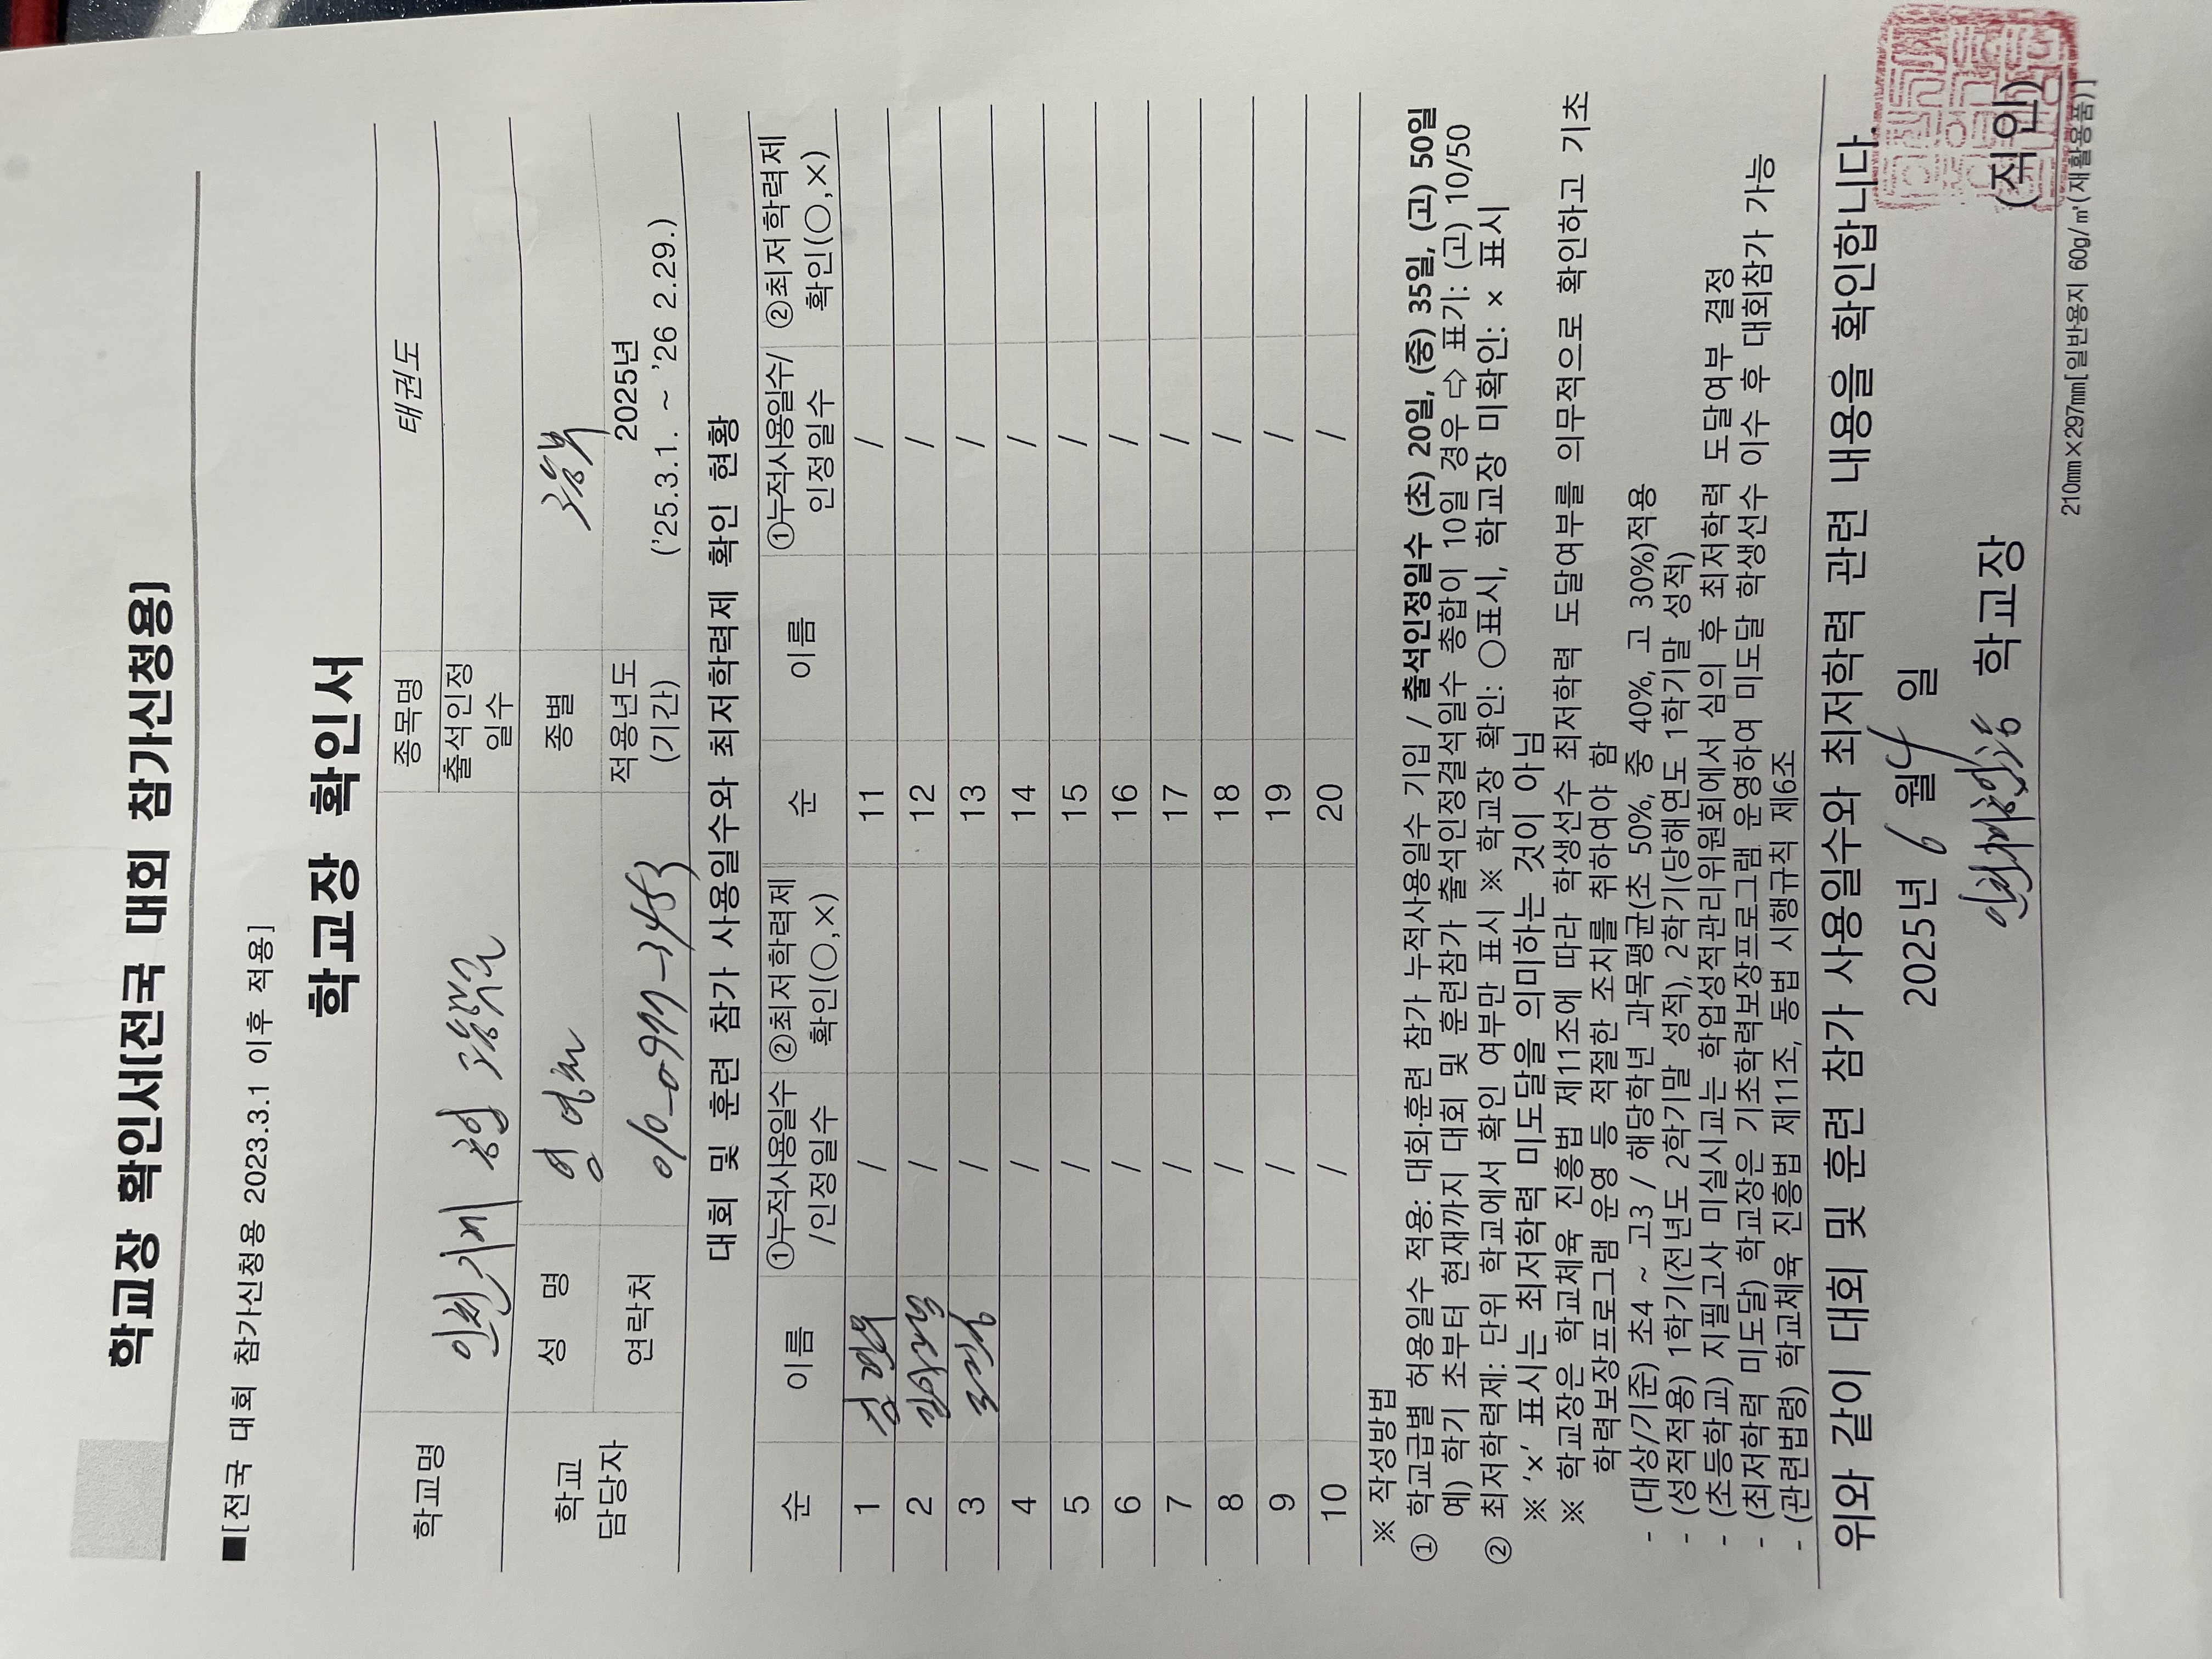 학교장 확인서[전국 대회 참가신청용]
■[전국 대회 참가신청용 2023.3.1 이후 적용]
학교장 확인서
학교명 종목명 태권도
출석인정 일수
학교 담당자 성 명 종별 고등부
연락처 010-0977-3453 적용년도 (기간) 2025년 ('25.3.1. ~ '26 2.29.)
대회 및 훈련 참가 사용일수와 최저학력제 확인 현황
순 이름 ①누적사용일수 /인정일수 ②최저학력제 확인(○,×) 순 이름 ①누적사용일수/ 인정일수 ②최저학력제 확인(○,×)
1 / 11 /
2 / 12 /
3 / 13 /
4 / 14 /
5 / 15 /
6 / 16 /
7 / 17 /
8 / 18 /
9 / 19 /
10 / 20 /
※ 작성방법
① 학교급별 허용일수 적용: 대회·훈련 참가 누적사용일수 기입 / 출석인정일수 (초) 20일, (중) 35일, (고) 50일
예) 학기 초부터 현재까지 대회 및 훈련참가 출석인정결석일수 총합이 10일 경우 ⇨ 표기: (고) 10/50
② 최저학력제: 단위 학교에서 확인 여부만 표시 ※ 학교장 확인: ○표시, 학교장 미확인: × 표시
※ '×' 표시는 최저학력 미도달을 의미하는 것이 아님
※ 학교장은 학교체육 진흥법 제11조에 따라 학생선수 최저학력 도달여부를 의무적으로 확인하고 기초
학력보장프로그램 운영 등 적절한 조치를 취하여야 함
- (대상/기준) 초4 ~ 고3 / 해당학년 과목평균(초 50%, 중 40%, 고 30%)적용
- (성적적용) 1학기(전년도 2학기말 성적), 2학기(당해연도 1학기말 성적)
- (초등학교) 지필고사 미실시교는 학업성적관리위원회에서 심의 후 최저학력 도달여부 결정
- (최저학력 미도달) 학교장은 기초학력보장프로그램 운영하여 미도달 학생선수 이수 후 대회참가 가능
- (관련법령) 학교체육 진흥법 제11조, 동법 시행규칙 제6조
위와 같이 대회 및 훈련 참가 사용일수와 최저학력 관련 내용을 확인합니다.
2025년 6 월 4 일
학교장 (직인)
210㎜×297㎜[일반용지 60g/㎡(재활용품)]